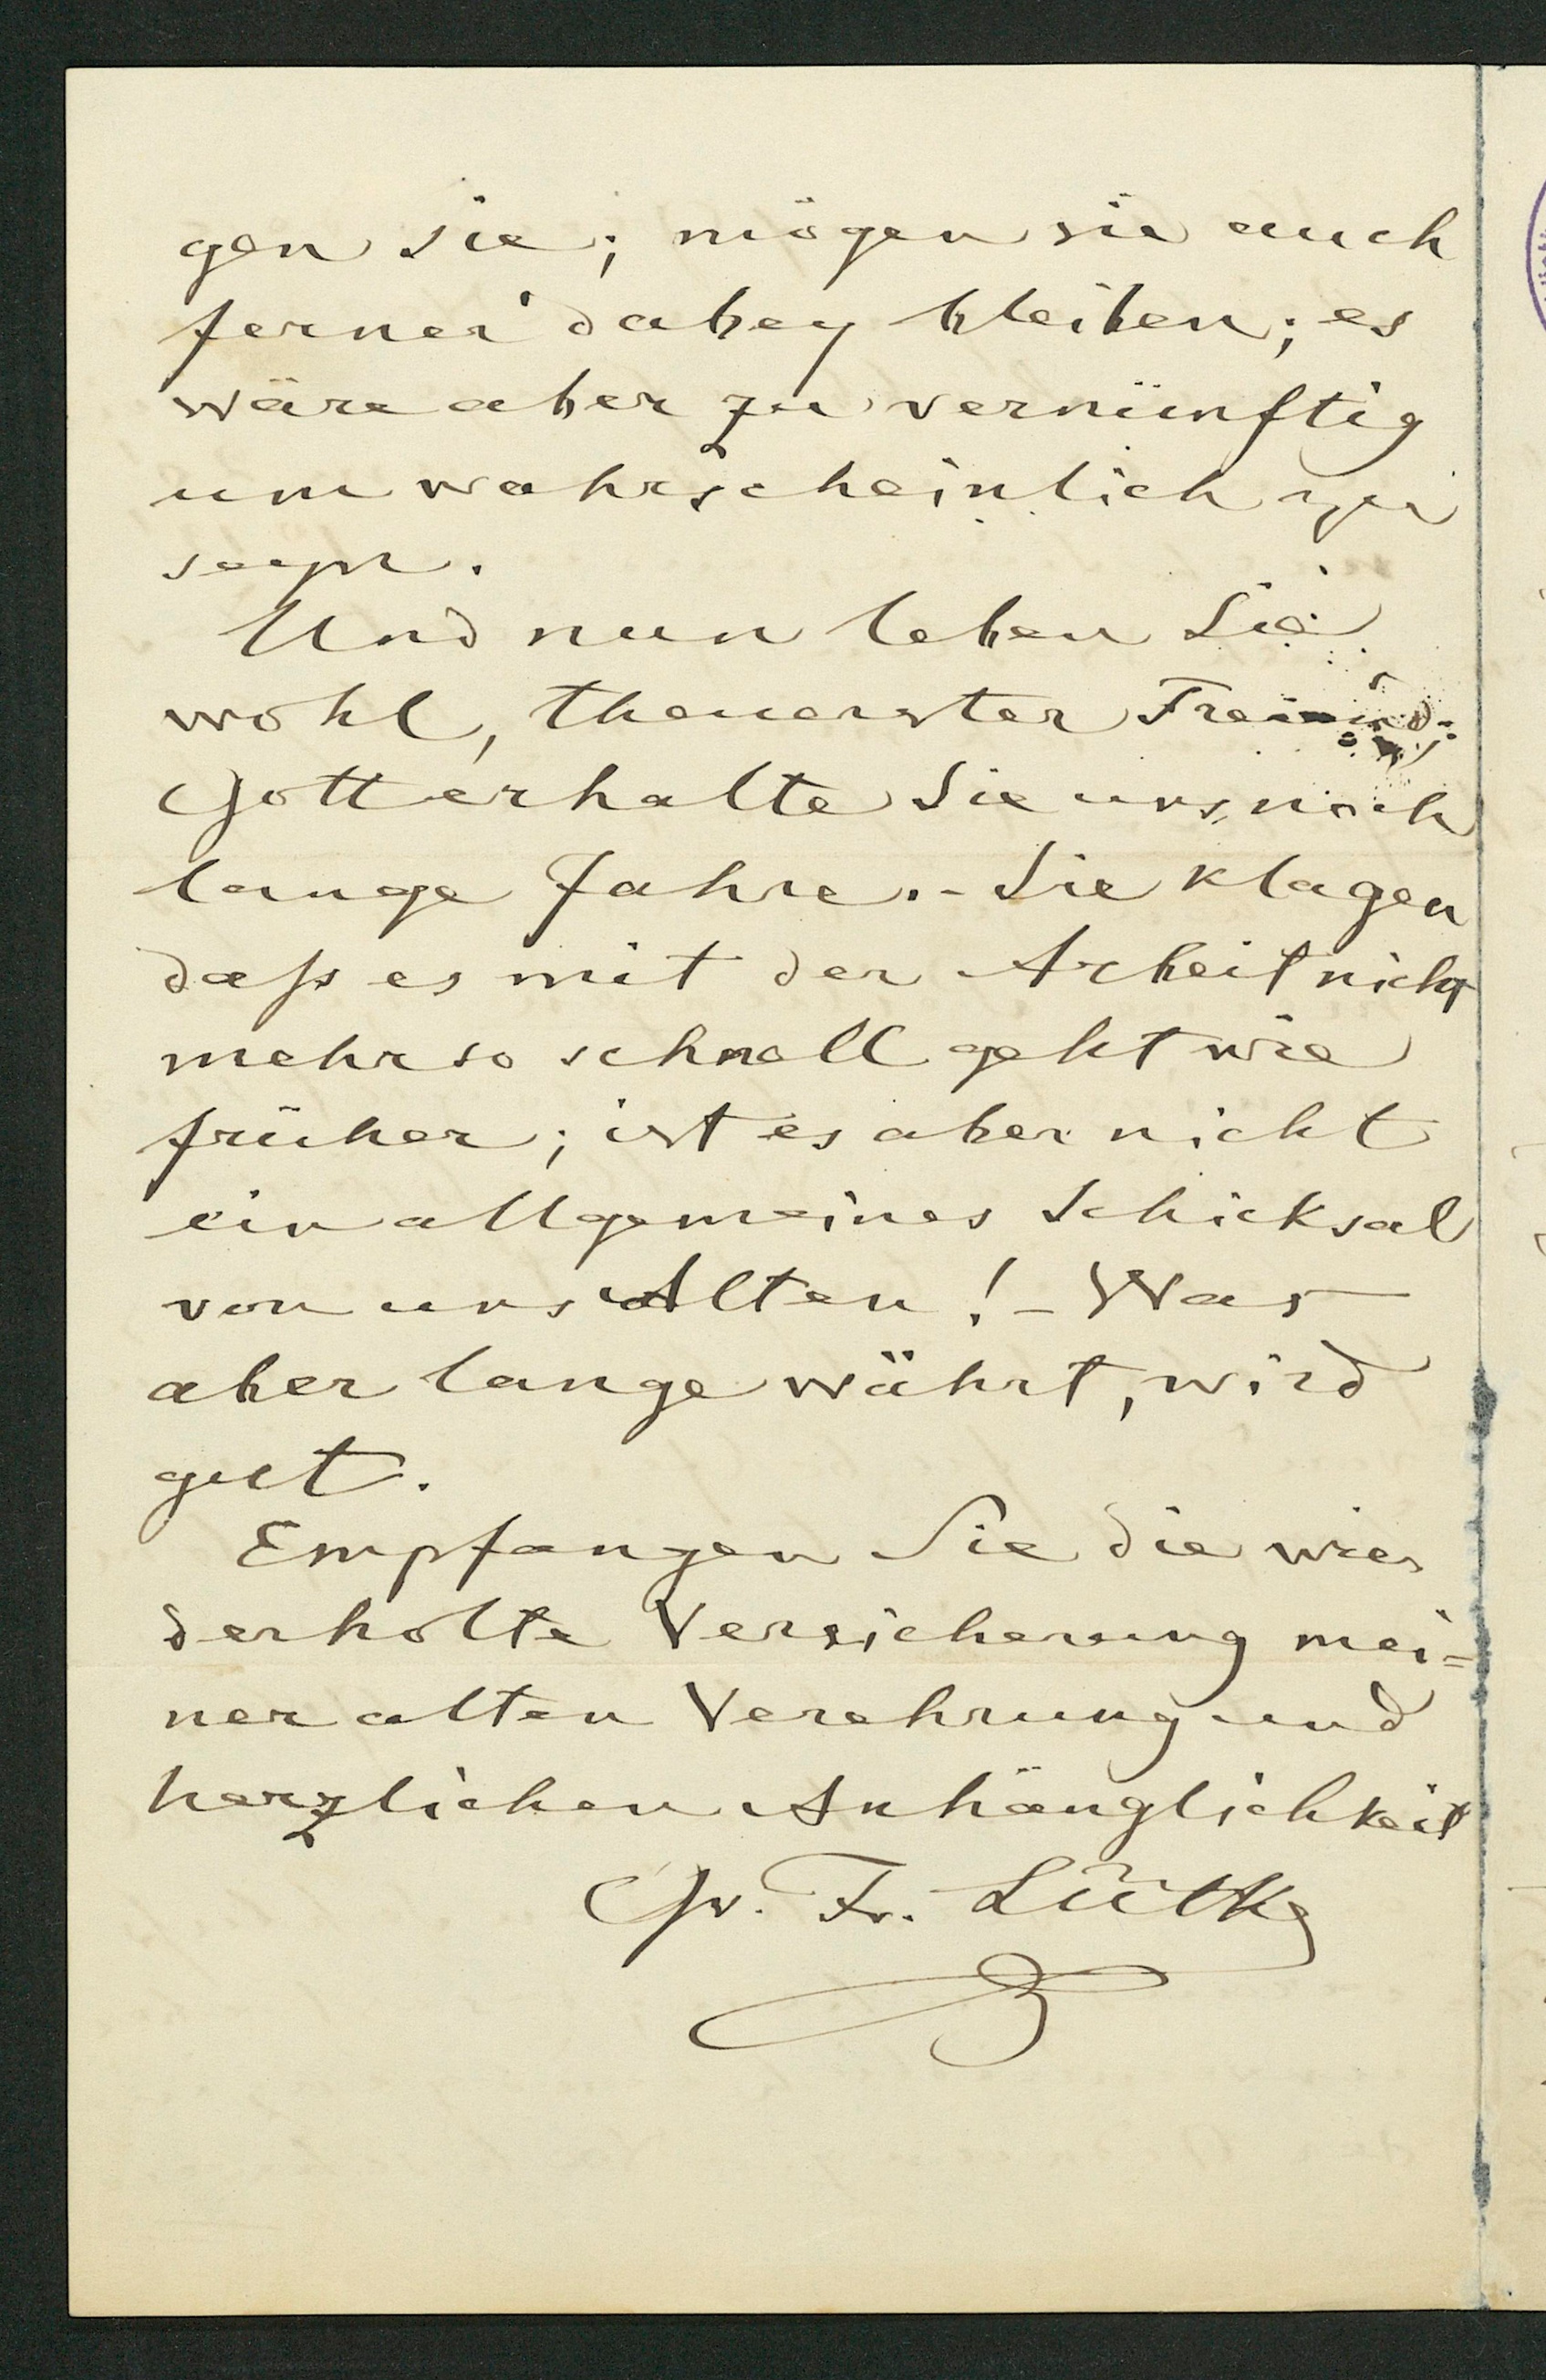 gen sie; mögen sie auch
ferner dabey bleiben; es
wäre aber zu vernünftig
um wahrscheinlich zu
seyn.
Und nun leben Sie
wohl, theuerster Freund;
Gott erhalte Sie uns noch
lange Jahre. - Sie klagen
daß es mit der Arbeit nicht
mehr so schnell geht wie
früher; ist es aber nicht
ein allgemeines Schicksal
von uns Alten! - Was
aber lange währt, wird
gut.
Empfangen Sie die wie
derholte Versicherung mei=
ner alten Verehrung und
herzlichen Anhänglichkeit
Gr. Fr. Lütke